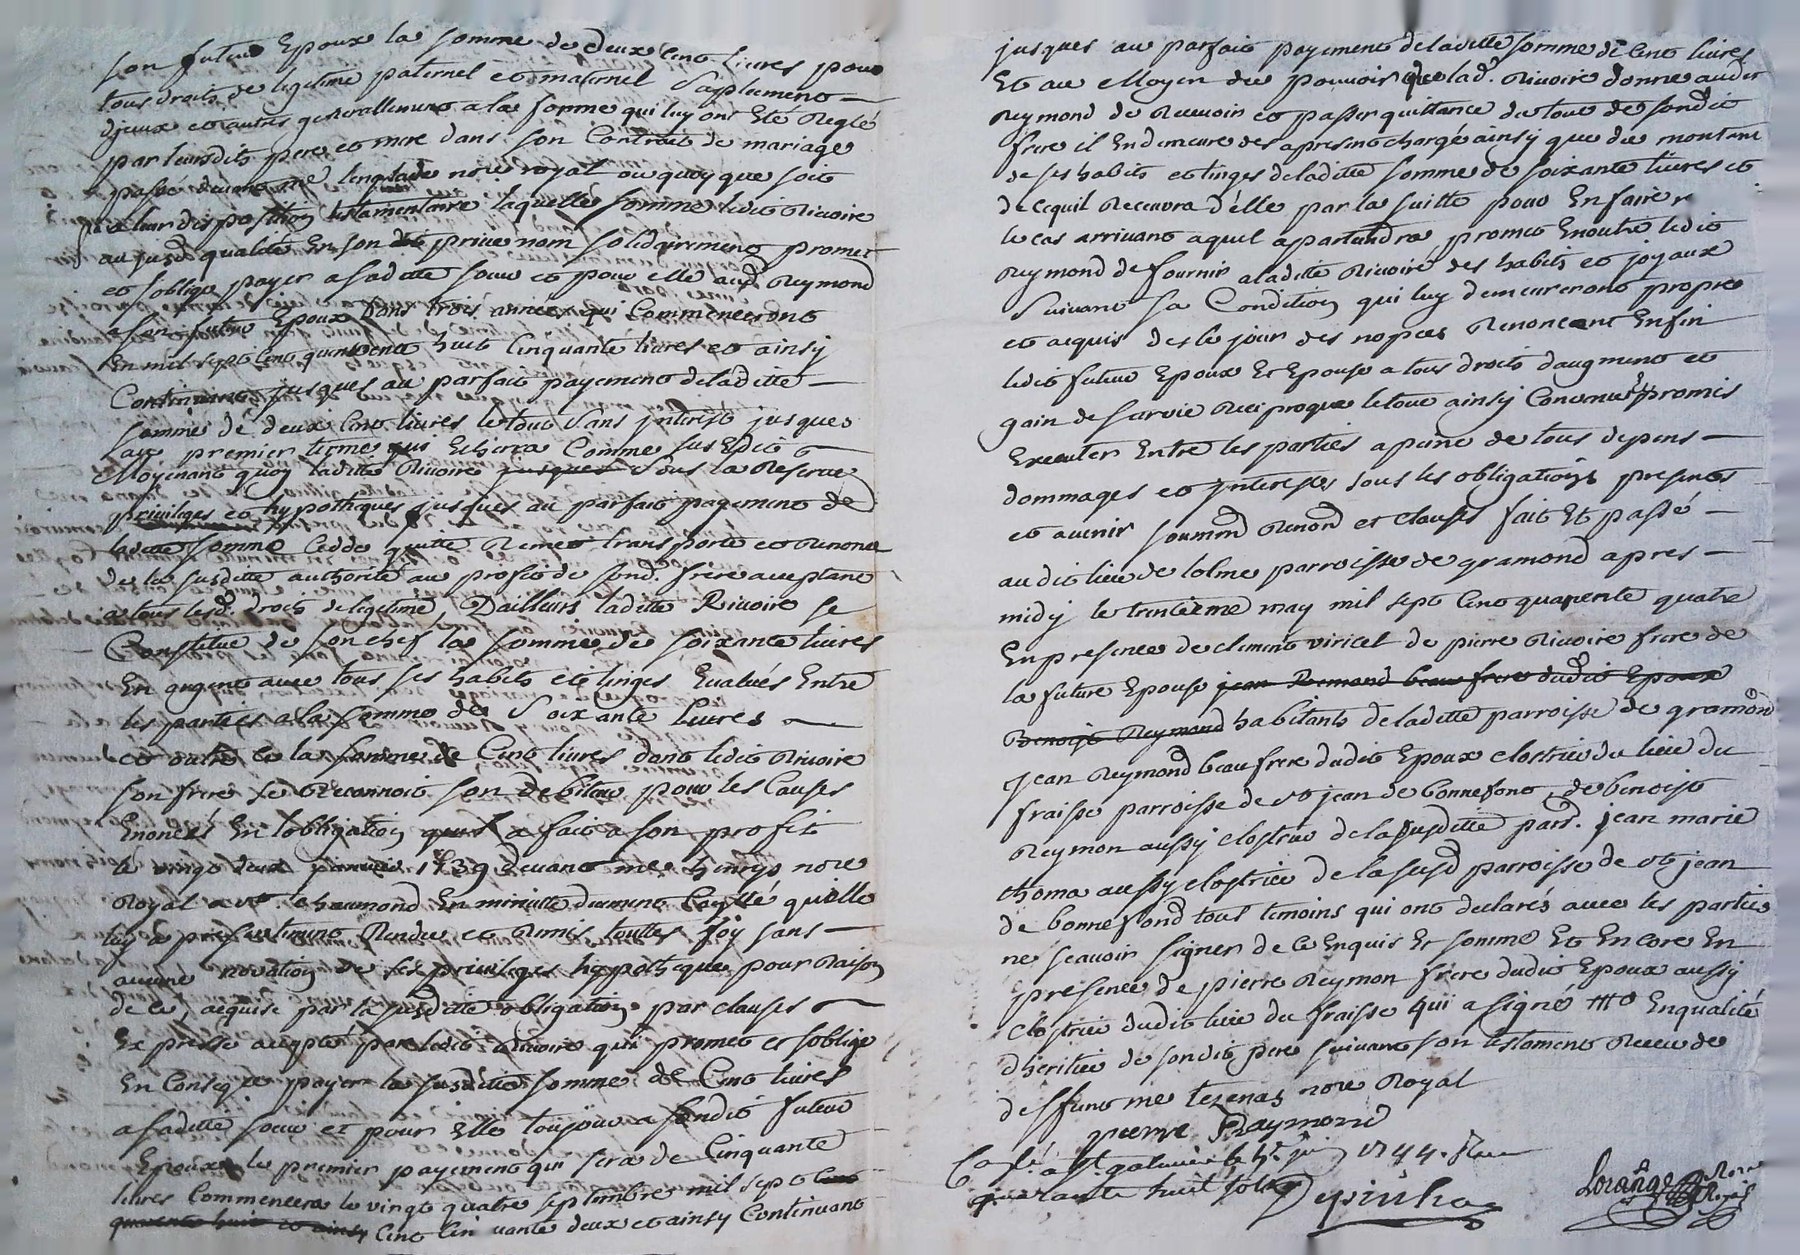 son futur Epoux la somme de deux Cent livres pour
tous droits de legitime paternel et maternel Suplement
djceux et autres generallement a la somme qui luy ont Ete Reglé
par leursdits pere et mere dans son Contrat de mariage
passé devant me no.re royal ou quoy que soit
a leur disposition testamentaire laquelle somme ledit Rivoire
au susd qualité En son privé nom solidairement promet
et soblige payer a sadite soeur et pour elle aud Reymond
a son futur Epoux dans trois années qui Commenceront
En mil sept Cent quarente huit Cinquante livres et ainsy
Continuant jusques au parfait payement de laditte
somme de deux Cent livres le tout Sans jnterest jusques
au premier terme qui Echerra Comme sus Edit
Moyenant quoy laditte Rivoire jusques Sous la Reserve
privileges et hypotheques jusques au parfait payement de
laditte somme Cedde quitte Remet transporte et Renonce
de la susditte authorité au profit de sond. frere aceptant
a tous lesd. droits de legitime, D'ailleurs laditte Rivoire se
Constitue de son chef la somme de soixante livres
En argent avec tous ses habits et linges Evalués Entre
les parties a la somme de Soixante livres
et outre ce la somme de Cent livres dont ledit Rivoire
son frere se Reconnoit son debiteur pour les Causes
Enoncés En lobligation quil a fait a son profit
le vingt deux janvier 1739 devant me henrys no.re
Royal a st. chaumond En minutte duement Coullé quelle
luy a presentement Rendu et Remis touttes foy sans
aucune novation de ses privileges hypotheques pour Raison
de ce, acquise par la susditte obligation par clauses
Expresse accepté par ledit Rivoire qui promet et soblige
En Conseq.e payer la susditte somme de Cent livres
a saditte soeur et pour Elle toujour a sondit futur
Epoux le premier payement qui sera de Cinquante
livres Commencera le vingt quatre septembre mil sept Cent
quarente huit et ainsy Cent Cinquante deux et ainsy Continuant
jusques au parfait payement de laditte somme de Cent livres
Et au Moyen du pouvoir que lad. Rivoire donne audit
Reymond de Recevoir et passer quittance du tout de sondit
frere il En demeure des apresent chargé ainsy que du montant
de ses habits et linges de laditte somme de soixante livres et
de Cequil Recevra d'elle par la suitte pour En faire
le cas arrivant a quil apartiendra promet En outre ledit
Reymond de fournir a laditte Rivoire des habits et joyaux
Suivant sa Condition qui luy demeureront propre
et acquis des le jour des nopces Renonceant Enfin
ledit futur Epoux Et Epouse a tous droits daugment et
gain de survie Reciproque le tout ainsy Convenu promis
Executer Entre les parties a peine de tous depens
dommages et jnterests sous les obligations presents
et avenir soummd Renond et clauses fait Et passé
au dit lieu de lolme parroisse de gramond apres
midy le trentieme may mil sept Cent quarente quatre
En presence de clement viricel de pierre Rivoire frere de
la future Epouse jean Remond beau frere dudit Epoux
Benoist Reymond habitants de laditte parroisse de gramond
jean Reymond beau frere dudit Epoux clostrier du lieu du
fraisse parroisse de st jean de bonnefont, de benoist
Reymon aussy clostrier de la susditte parr. jean marie
thoma aussy clostrier de la susd parroisse de st jean
de bonnefond tous temoins qui ont declarés avec les parties
ne scavoir signer de ce Enquis Et sommé Et Encore En
presence de pierre Reymon frere dudit Epoux aussy
clostrier dudit lieu du fraisse qui a signé Enqualité
dheritier de sondit pere suivant son testament Receu de
deffunt me tezenas no.re Royal
pierre Raymond
a st. galmier le juin 1744. Reçu
quarante huit sols